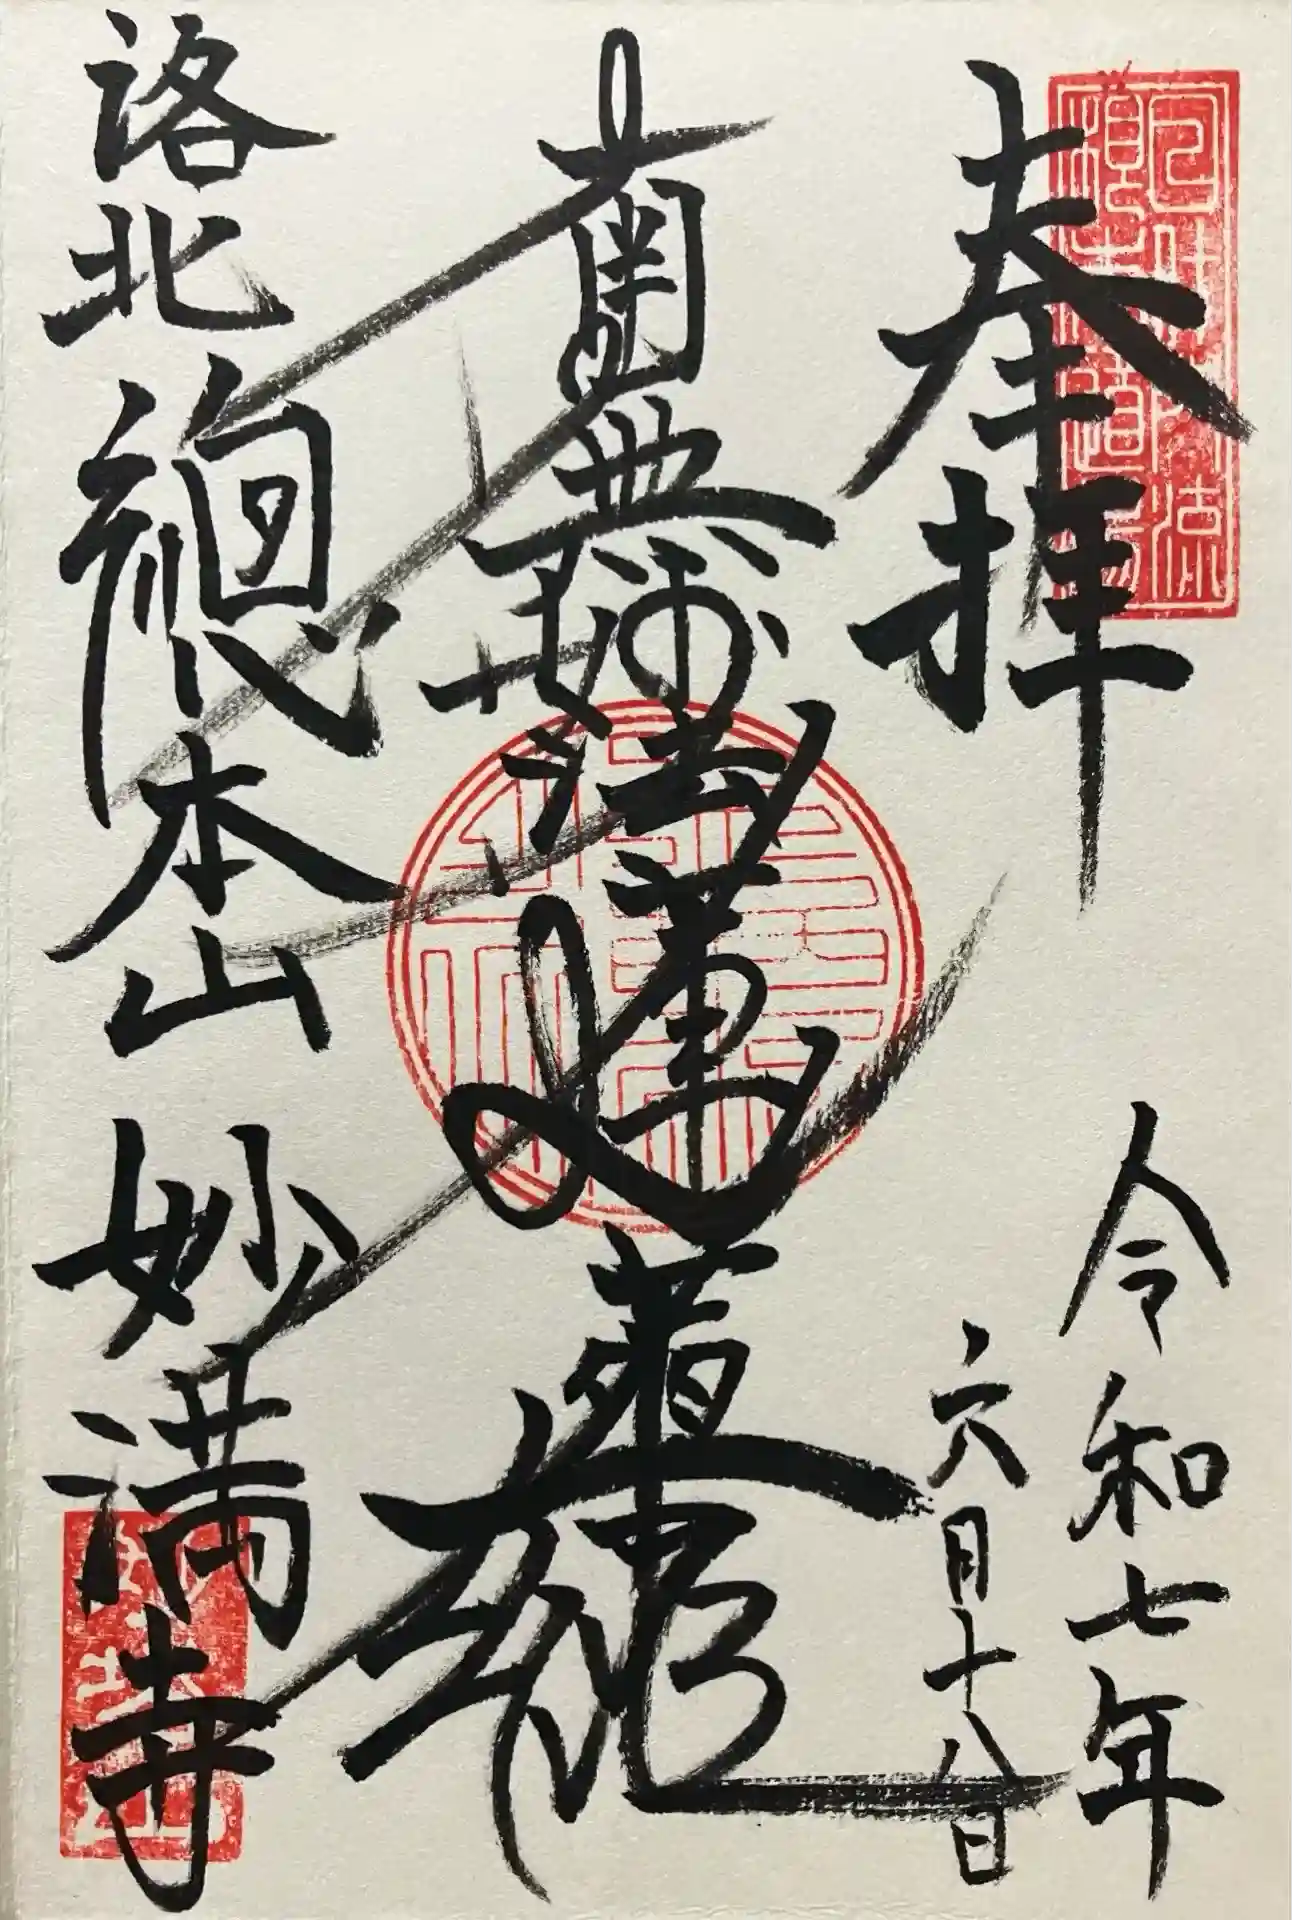 奉拝
令和七年
六月十八日
南無妙法蓮華経
洛北總本山 妙満寺